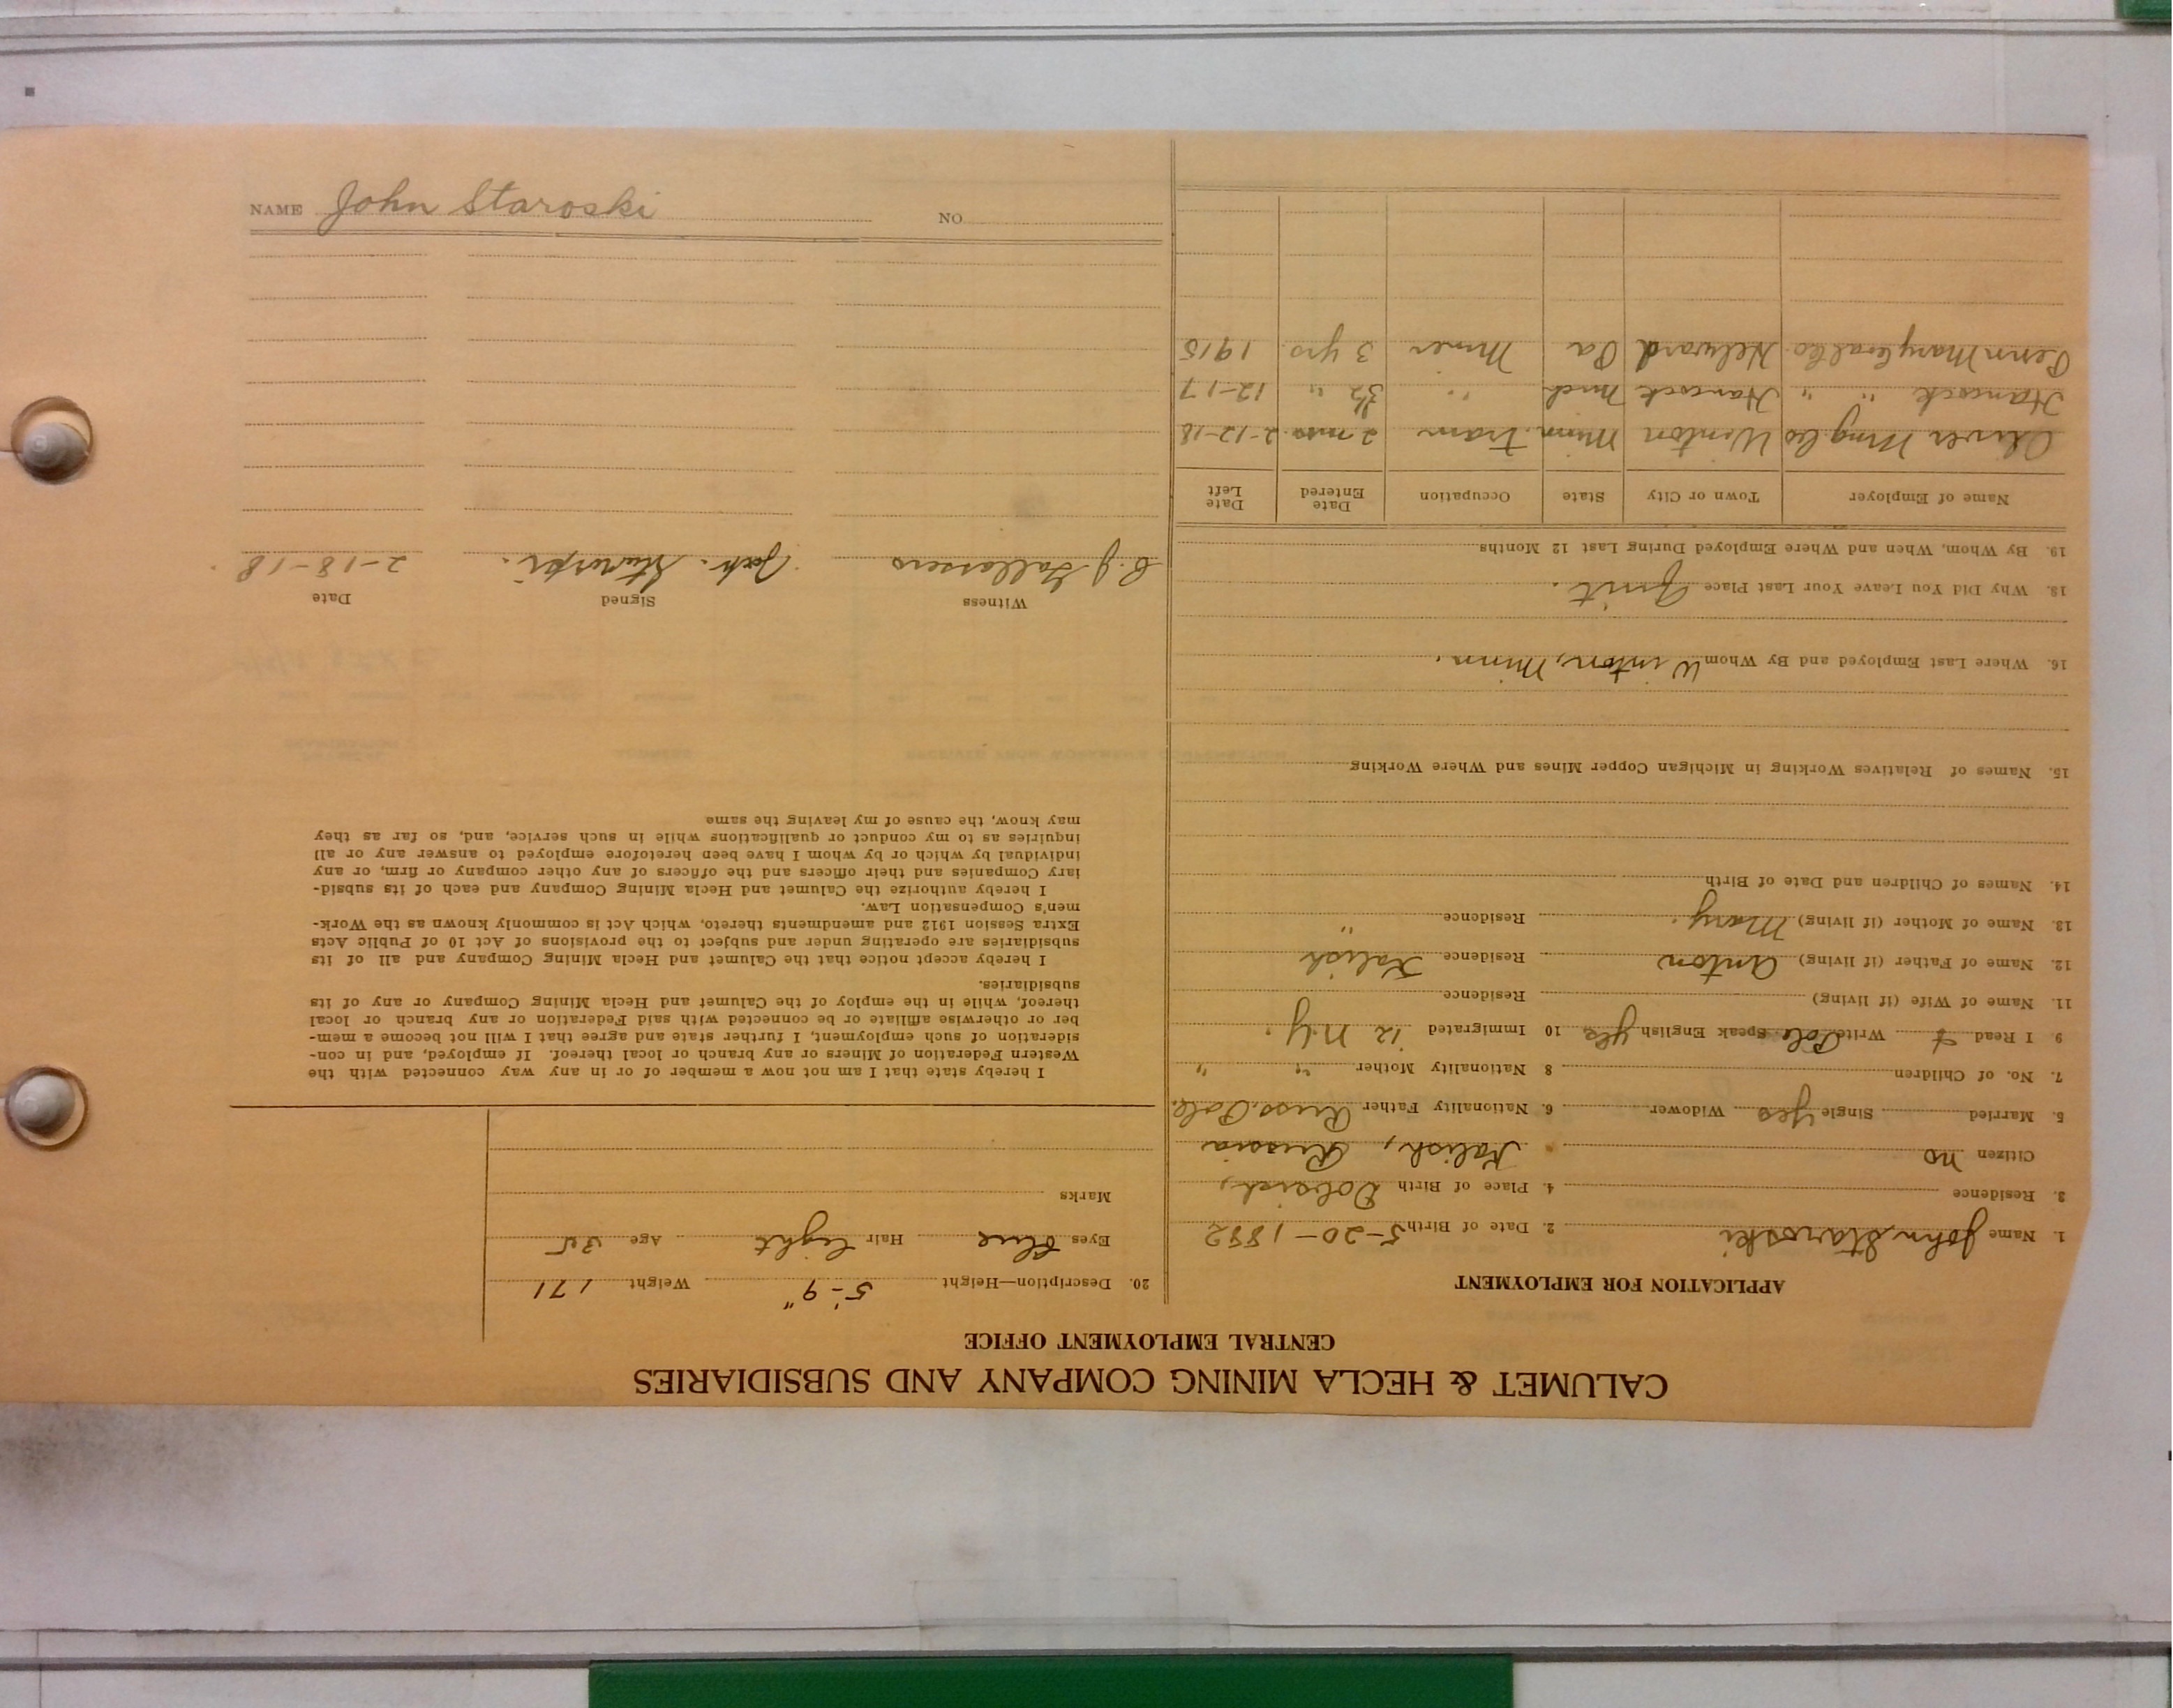 CALUMET & HECLA MINING COMPANY AND SUBSIDIARIES
CENTRAL EMPLOYMENT OFFICE
APPLICATION FOR EMPLOYMENT
1. Name John Staroski 2. Date of Birth 5-20-1882
3. Residence 4. Place of Birth
Citizen no Kalish, Russia
5. Married Single yes Widower 6. Nationality Father Russ. Pole.
7. No. of Children 8 Nationality Mother " "
9 I Read & Write Pole Speak English yes 10 Immigrated '12 N.Y.
11. Name of Wife (if living) Residence
12. Name of Father (if living) Anton Residence Kalish
13. Name of Mother (if living) Mary. Residence "
14. Names of Children and Date of Birth
15. Names of Relatives Working in Michigan Copper Mines and Where Working
16. Where Last Employed and By Whom Winton, Minn.
18. Why Did You Leave Your Last Place Quit.
19. By Whom, When and Where Employed During Last 12 Months
Name of Employer Town or City State Occupation Date Entered Date Left
Oliver Mng Co Winton Minn. Tram 2 mos. 2-12-18
Hancock " " Hancock Mich " 3½ " 12-17
Penn Mary Coal Co. Pa Miner 3 yrs. 1915
20. Description—Height 5'-9" Weight 171
Eyes Blue Hair light Age 35
Marks
I hereby state that I am not now a member of or in any way connected with the
Western Federation of Miners or any branch or local thereof. If employed, and in con-
sideration of such employment, I further state and agree that I will not become a mem-
ber or otherwise affiliate or be connected with said Federation or any branch or local
thereof, while in the employ of the Calumet and Hecla Mining Company or any of its
subsidiaries.
I hereby accept notice that the Calumet and Hecla Mining Company and all of its
subsidiaries are operating under and subject to the provisions of Act 10 of Public Acts
Extra Session 1912 and amendments thereto, which Act is commonly known as the Work-
men's Compensation Law.
I hereby authorize the Calumet and Hecla Mining Company and each of its subsid-
iary Companies and their officers and the officers of any other company or firm, or any
individual by which or by whom I have been heretofore employed to answer any or all
inquiries as to my conduct or qualifications while in such service, and, so far as they
may know, the cause of my leaving the same
Witness Signed Date
2-18-18
NAME John Staroski NO.